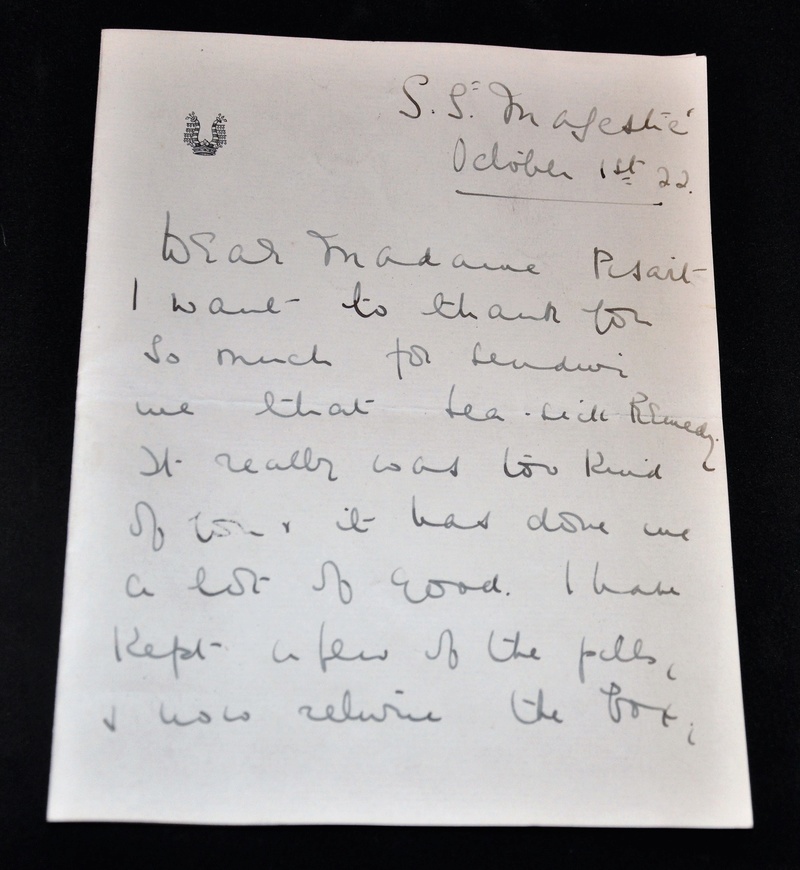 S.S. "Majestic"
October 1st 22.
Dear Madame
I want to thank you
so much for sending
me that sea-sick Remedy.
It really was too kind
of you & it has done me
a lot of good. I have
kept a few of the pills,
& now return the box,